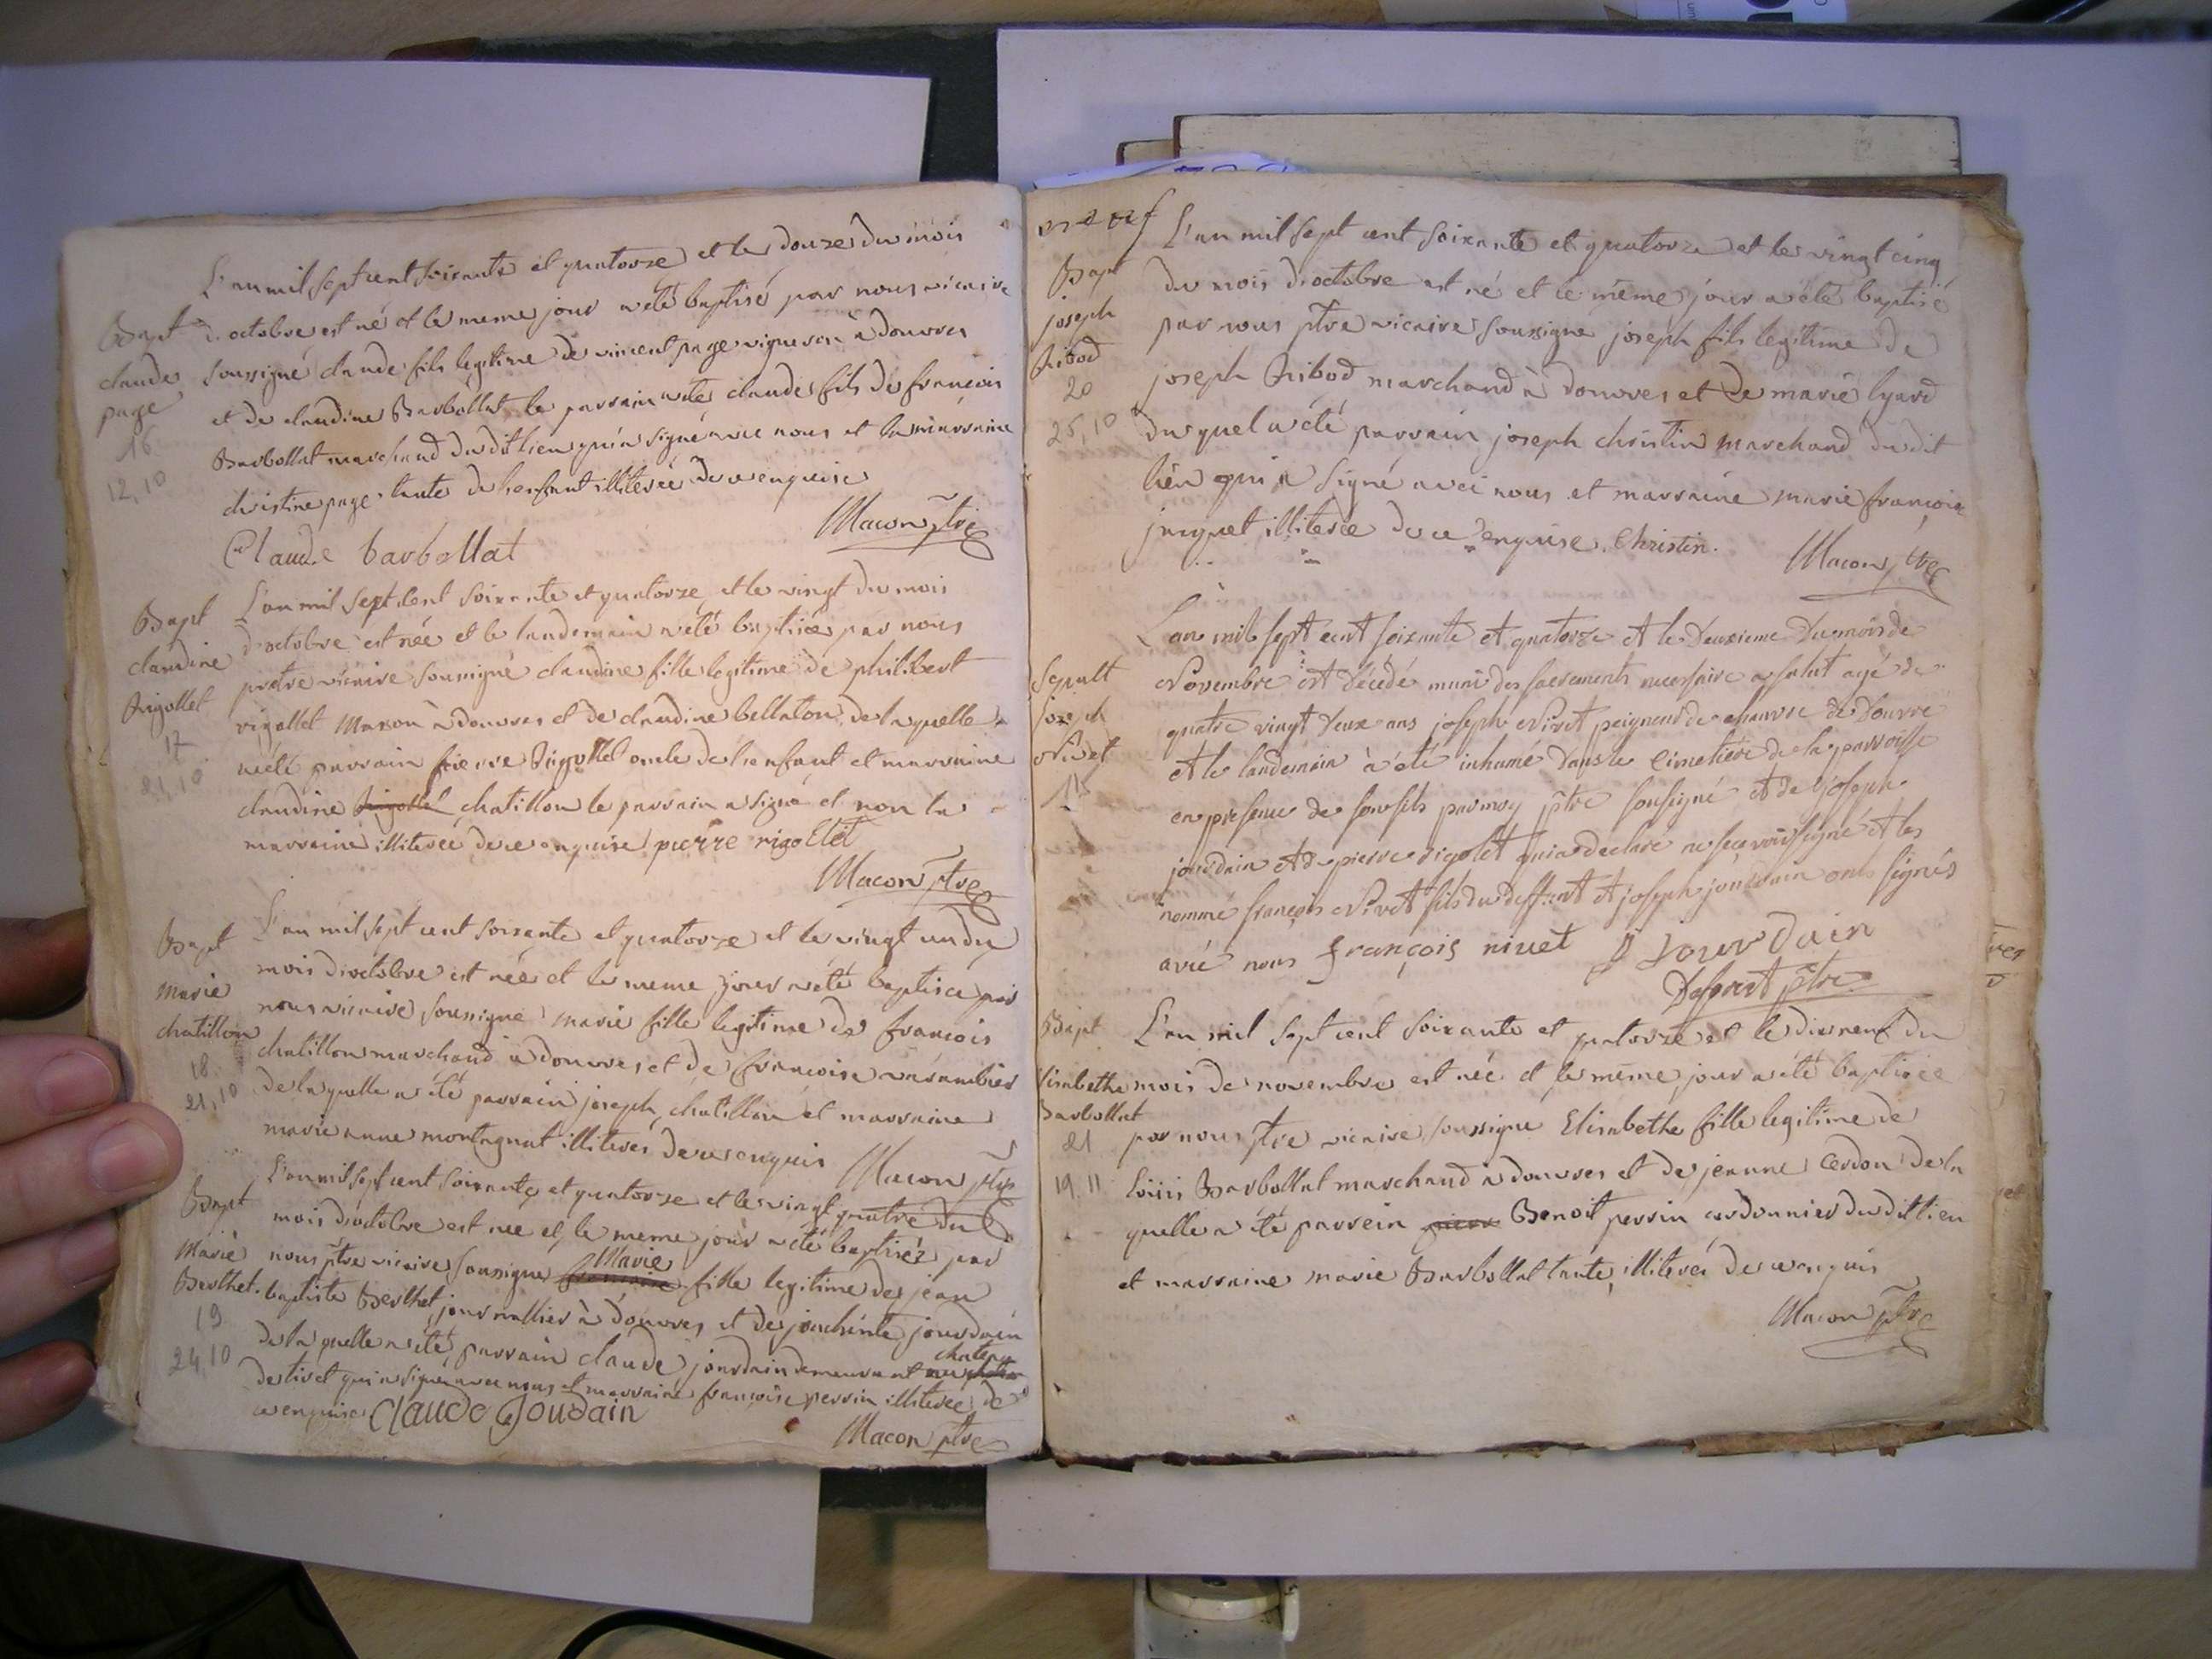 L'an mil sept cent soixante et quatorze et le douze du mois
Bapt d'octobre est né et le meme jour a été baptisé par nous vicaire
claude soussigné claude fils legitime de vincent page vigneron à douvres
page et de claudine Barbollat le parrain a été claude fils de françois
16 Barbollat marchand du dit lieu qui a signé avec nous et la marraine
12,10 christine page tante de l'enfant illiterée de ce enquise
Macon ptre
Claude barbollat
L'an mil sept cent soixante et quatorze et le vingt du mois
Bapt d'octobre est née et le landemain a été baptisée par nous
claudine pretre vicaire soussigné claudine fille legitime de philibert
Rigollet rigollet Mason à douvres et de claudine bellaton de laquelle a
17 été parrain pierre Rigollet oncle de l'enfant et marraine
21,10 claudine Rigollet chatillon le parrain a signé et non la
marraine illiterée de ce enquise pierre rigollet
Macon ptre
L'an mil sept cent soixante et quatorze et le vingt un du
Bapt mois d'octobre est née et le meme jour a été baptisée par
marie nous vicaire soussigné marie fille legitime de françois
chatillon chatillon marchand à douvres et de françoise varambier
18 de laquelle a été parrain joseph chatillon et marraine
21,10 marie anne montagnat illiterés de ce enquis
Macon ptre
L'an mil sept cent soixante et quatorze et le vingt quatre du
Bapt mois d'octobre est née et le meme jour a été baptisée par
Marie
Marie nous ptre vicaire soussigné fille legitime de jean
Berthet baptiste Berthet journallier à douvres et de joachinte jourdain
19 de la quelle a été parrain claude jourdain demeurant au chateau
24,10 de tiret qui a signé avec nous et marraine françoise perrin illiterée de
ce enquise Claude Joudain
Macon ptre
neuf
L'an mil sept cent soixante et quatorze et le vingt cinq
Bapt du mois d'octobre est né et le même jour a été baptisé
joseph par nous ptre vicaire soussigné joseph fils legitime de
Ribod joseph Ribod marchand à douvres et de marie lyard
20 du quel a été parrain joseph christin marchand du dit
25,10 lieu qui a signé avec nous et marraine marie françoise
jacquet illiterée de ce enquise. Christin.
Macon ptre
L'an mil sept cent soixante et quatorze et le deuxieme du mois de
Sepult Novembre est décedé muni des sacrements necessaire a salut agé de
joseph quatre vingt deux ans joseph Nivet peigneur de chanvre de Douvre
Nivet et le landemain à été inhumé dans le cimetière de la parroisse
15 en presence de son fils par moy ptre sousigné et de joseph
jourdain et de pierre rigolet qui a declaré ne sçavoir signé et les
nommé françois Nivet fils du deffunt et joseph jourdain ons signés
avec nous françois nivet J Jourdain
Ptre
Bapt L'an mil sept cent soixante et quatorze et le dixneuf du
Elisabethe mois de novembre est née et le même jour a été baptisée
Barbollat par nous ptre vicaire soussigné Elisabethe fille legitime de
21 Louis Barbollat marchand à douvres et de jeanne Cerdon de la
19.11 quelle a été parrein Benoit perrin cordonnier du dit lieu
et marraine marie Barbollat tante, illiterés de ce enquis
Macon ptre